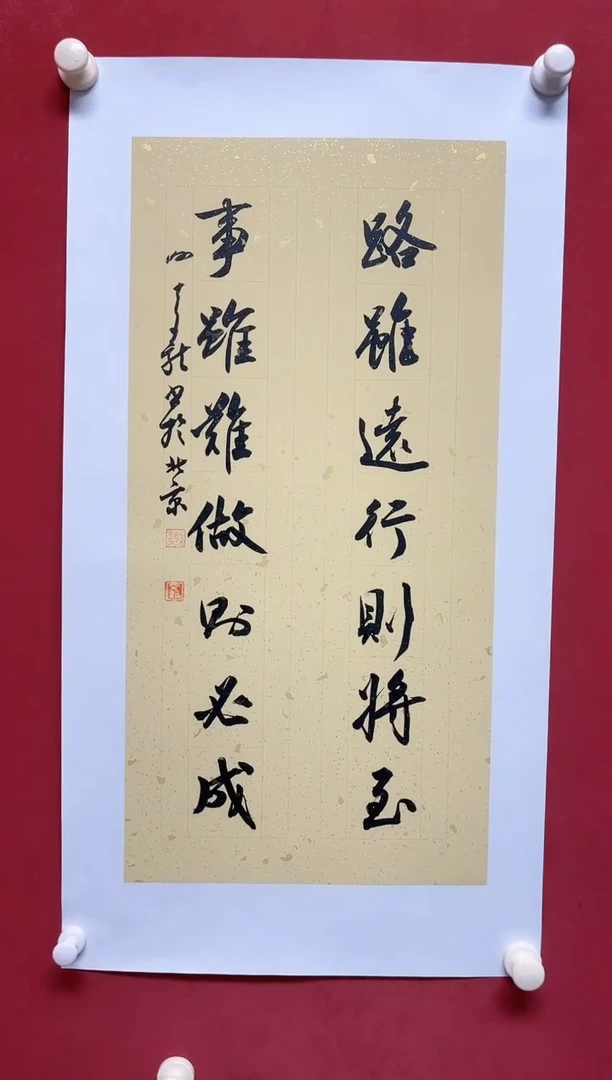 路雖遠行則將至
事雖難做則必成
書於北京